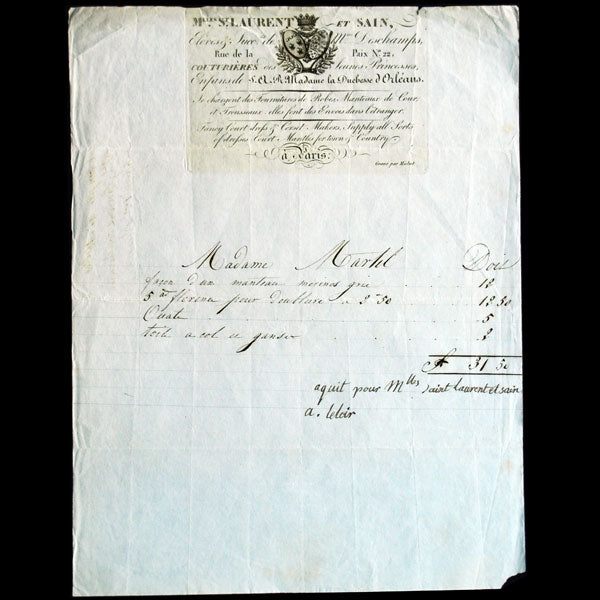 Mlles St LAURENT ET SAIN,
Elèves & Succrs de Mme Deschamps,
Rue de la Paix No. 22,
COUTURIÈRES des Jeunes Princesses,
Enfans de S.A.R. Madame la Duchesse d'Orléans.
Se chargent des Fournitures de Robes, Manteaux de Cour,
et Trousseaux elles font des Envois dans l'étranger.
Fancy Court dress & Corset Makers, Supply all Sorts
of dresses Court Mantles for town & Country
à Paris.
Gravé par
Madame Martel Doit
façon d'un manteau merinos gris 12
5 au florence pour doublure a 2 50 12 50
Ouate 5
toile a col et ganse 2
fr 31 50
aquit pour Mlles Saint Laurent et sain
a. leloir